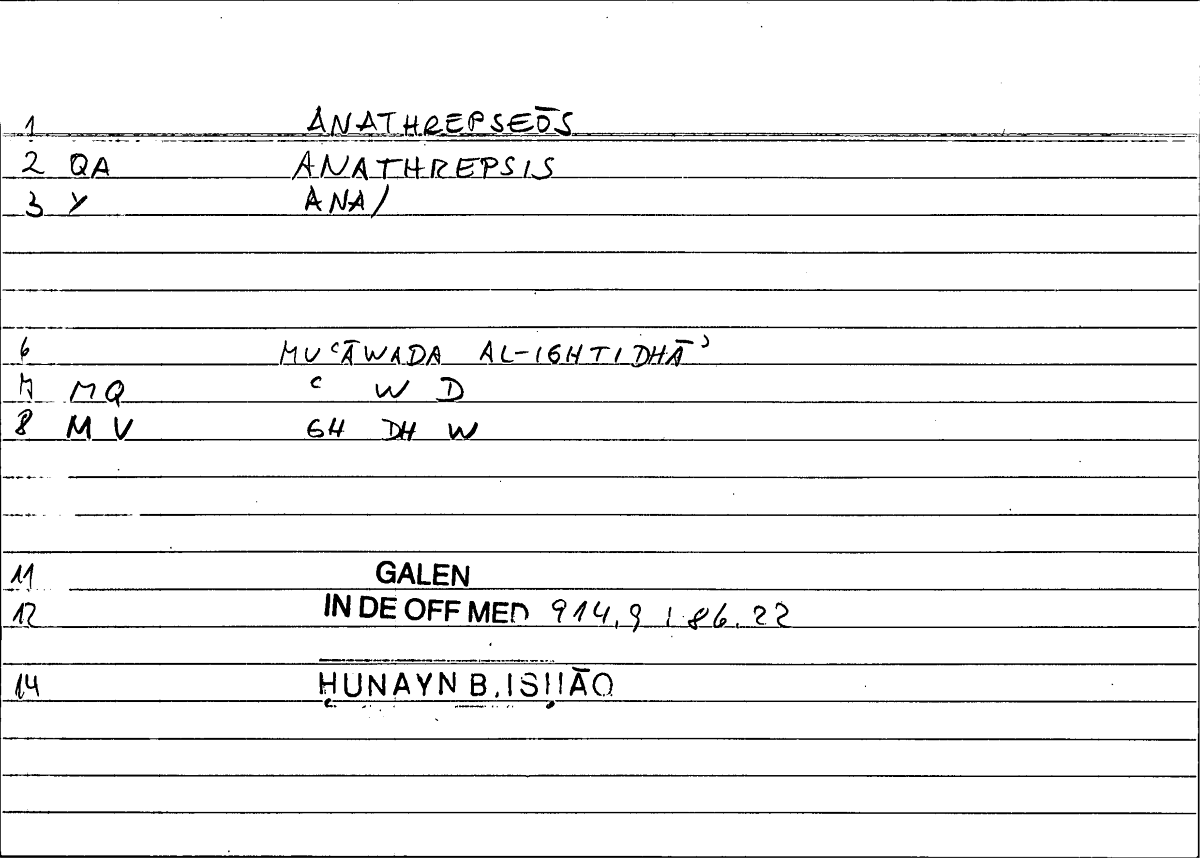 1 ANATHREPSEŌS
2 QA ANATHREPSIS
3 Y ANA/
6 MUʿĀWADA AL-IGHTIDHĀʾ
7 MQ ʿ W D
8 MV GH DH W
11 GALEN
12 IN DE OFF MED 914.9 : 86.22
14 ḤUNAYN B. ISḤĀQ